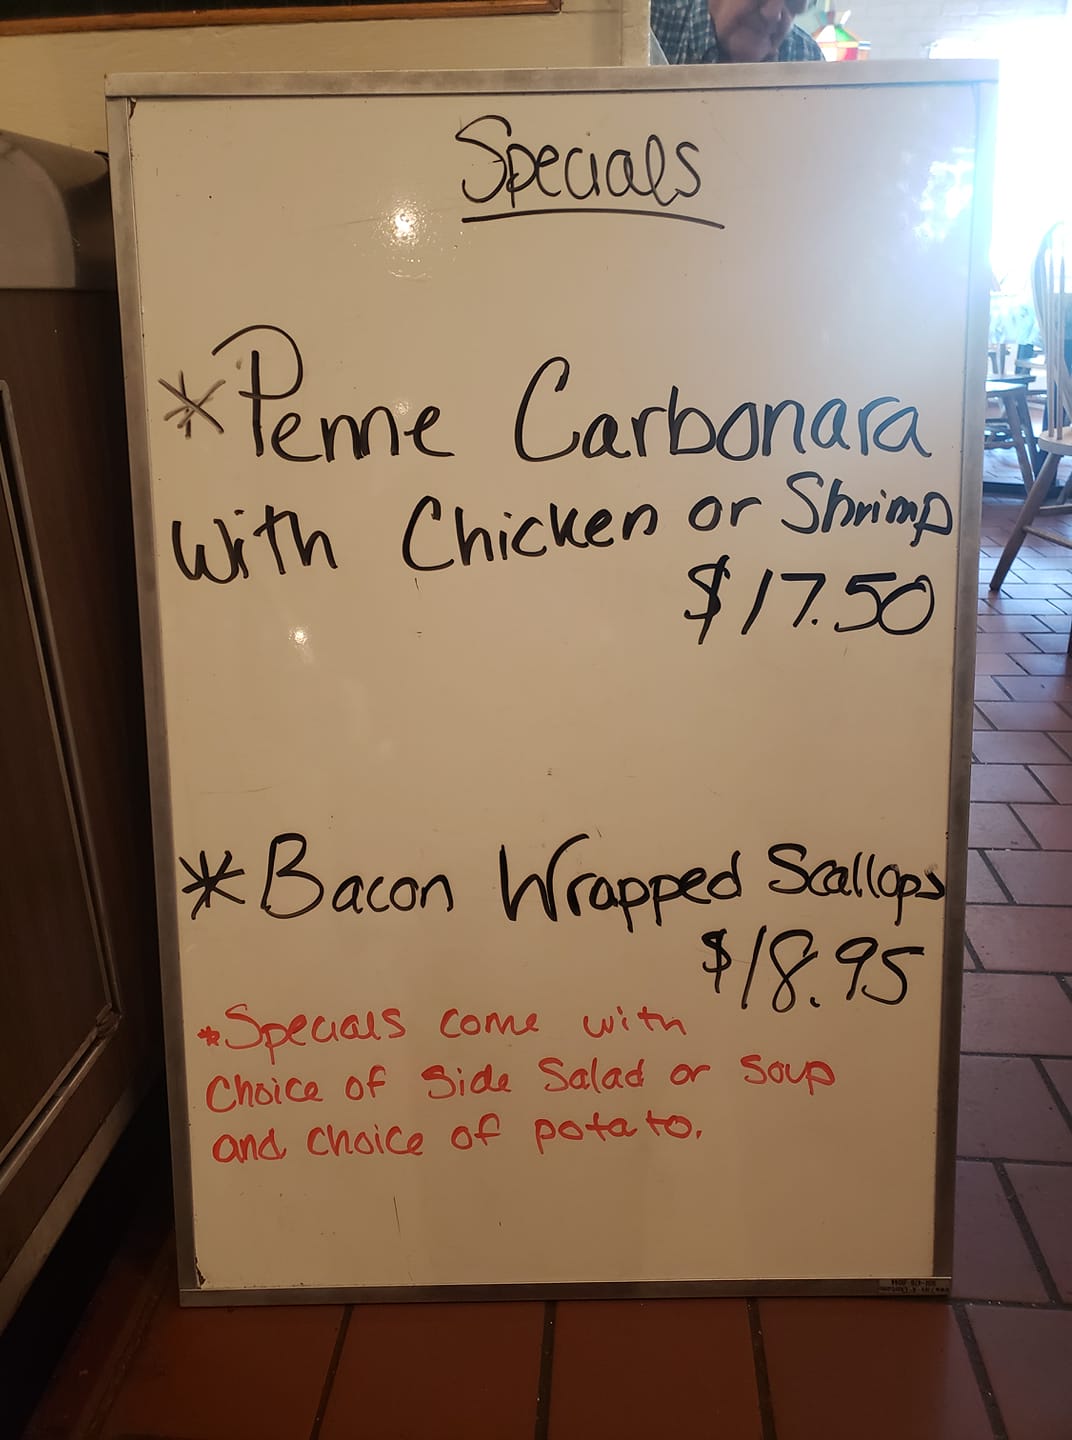 Specials
*Penne Carbonara
with Chicken or Shrimp
$17.50
*Bacon Wrapped Scallops
$18.95
*Specials come with
Choice of Side Salad or Soup
and choice of potato.